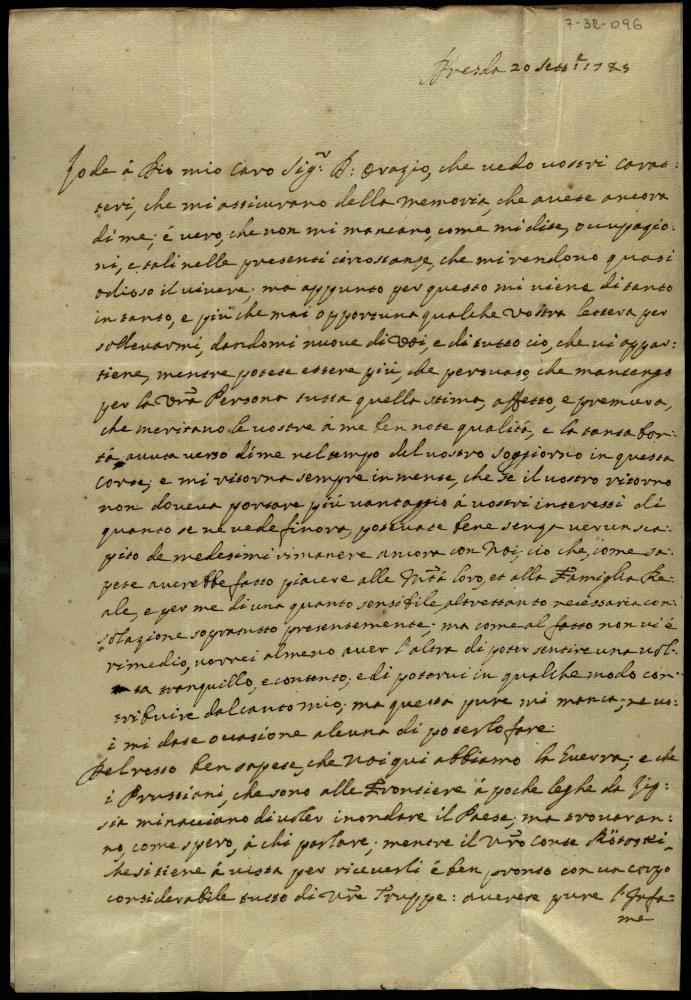 7-32-096
Dresda 20 Sett.e 1745
Lode à Dio mio caro Sig.r D: Orazio, che vedo vostri carat-
teri, che mi assicurano della memoria, che avete ancora
di me; è vero, che non mi mancano, come mi dite, occupazio-
ni, e tali nelle presenti circostanze, che mi rendono quasi
odioso il vivere; ma appunto per questo mi viene di tanto
in tanto, e più che mai opportuna qualche vostra lettera per
sollevarmi, dandomi nuove di Voi, e di tutto ciò, che vi appar-
tiene, mentre potete essere più, che persuaso, che mantengo
per la Vrã Persona tutta quella stima, affetto, e premura,
che meritano le vostre à me ben note qualità, e la tanta bon-
tà avuta verso di me nel tempo del vostro soggiorno in questa
Corte; e mi ritorna sempre in mente, che se il vostro ritorno
non doveva portare più vantaggio à vostri interessi di
quanto se ne vede finora, potevate bene senza verun sca-
pito de medesimi rimanere ancora con Noi; ciò che, come sa-
pete averebbe fatto piacere alle Mtà loro, et alla Famiglia Re-
ale, e per me di una quanto sensibile altrettanto necessaria con-
solazione sopratutto presentemente; ma come al fatto non vi è
rimedio, vorrei almeno aver l'altra di poter sentire una vol-
ta tranquillo, e contento; e di potervi in qualche modo con-
tribuire dal canto mio; ma questa pure mi manca; ne vo-
i mi date occasione alcuna di poterlo fare.
Del resto ben sapete, che Noi qui abbiamo la Guerra; e che
i Prussiani, che sono alle Frontiere à poche leghe da Lip-
sia minacciano di voler inondare il Paese; ma trovaran-
no, come spero, à chi parlare; mentre il Vrõ Conte
che si tiene à vista per riceverli è ben pronto con un corpo
considerabile tutto di Vrẽ Truppe: averete pure l'Infa-
me